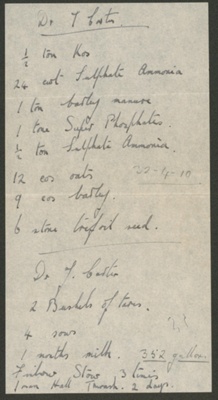 Dr T Carter
½ ton Kos
24 cwt Sulphate Ammonia
1 ton barley manure
1 tons Super Phosphates.
½ ton Sulphate Ammonia.
12 cos oats
9 cos barley.
6 stone trefoil seed.
Dr. T. Carter
2 Bushels of tares.
4 sows
1 months milk. 352 gallons.
Stow 3 times
1 man Hall Thrash. 2 days.